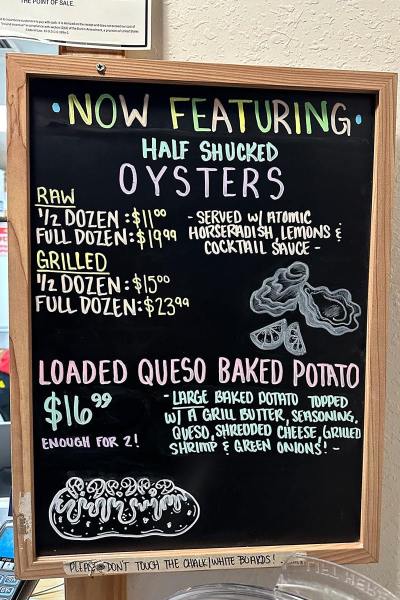 THE POINT OF SALE.
NOW FEATURING
HALF SHUCKED
OYSTERS
RAW
1/2 DOZEN: $11⁰⁰
FULL DOZEN: $19⁹⁹
- SERVED W/ ATOMIC
HORSERADISH, LEMONS &
COCKTAIL SAUCE -
GRILLED
1/2 DOZEN: $15⁰⁰
FULL DOZEN: $23⁹⁹
LOADED QUESO BAKED POTATO
$16⁹⁹
ENOUGH FOR 2!
- LARGE BAKED POTATO TOPPED
W/ A GRILL BUTTER, SEASONING,
QUESO, SHREDDED CHEESE, GRILLED
SHRIMP & GREEN ONIONS! -
PLEASE DON'T TOUCH THE CHALK/WHITE BOARDS!